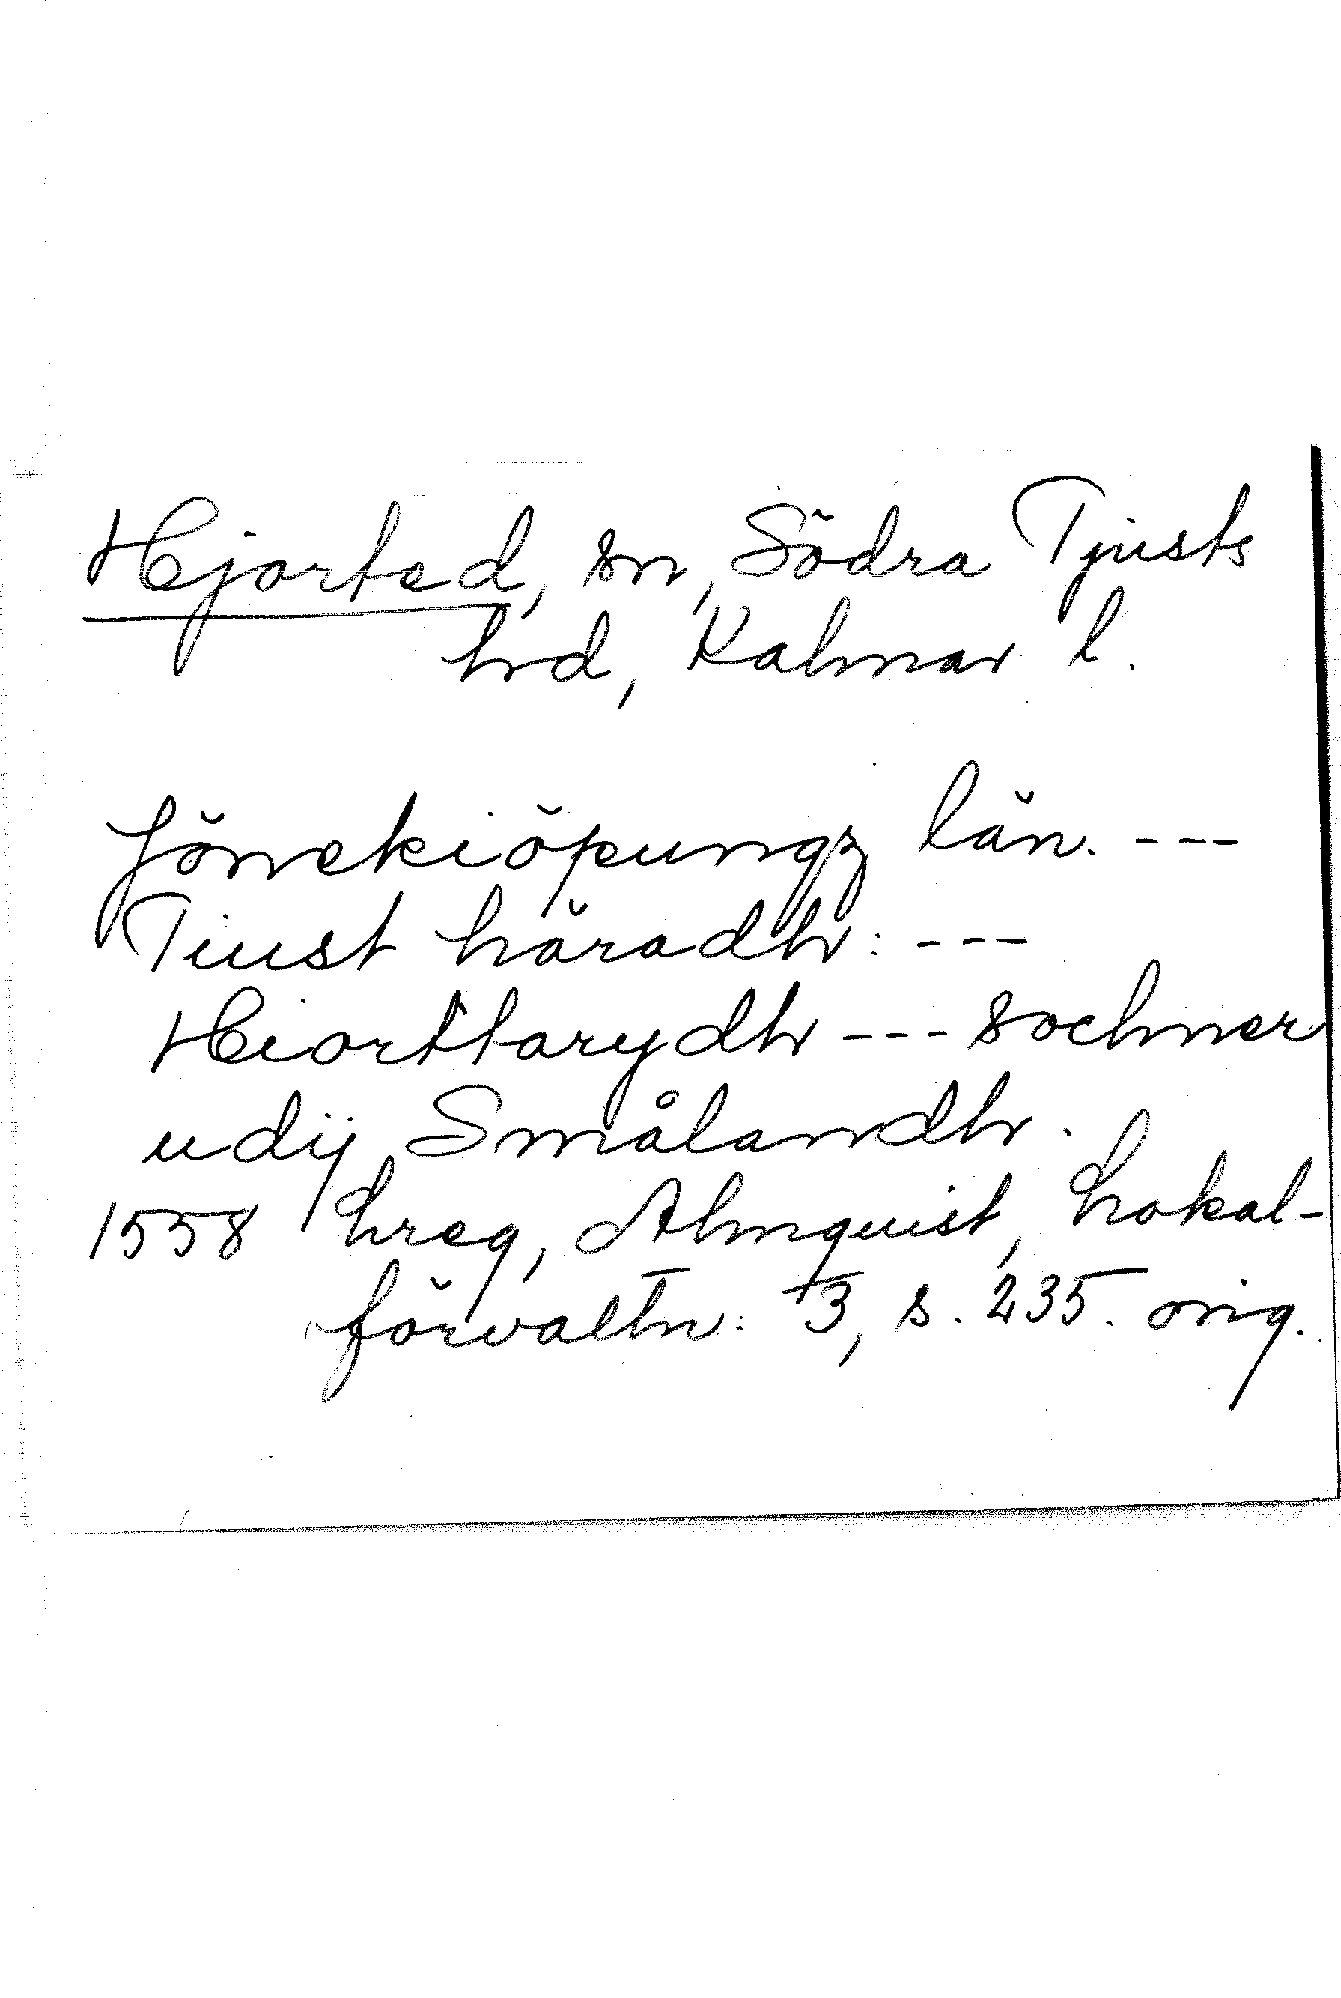 Hjorted, sn, Södra Tjusts
hrd, Kalmar l.
Jönekiöpungz län. ---
Tiust häradh: ---
Hiorttarydh --- sochner
udij Smålandh.
1558 hreg, Almquist, Lokal-
förvaltn. 3, s. 235. orig.